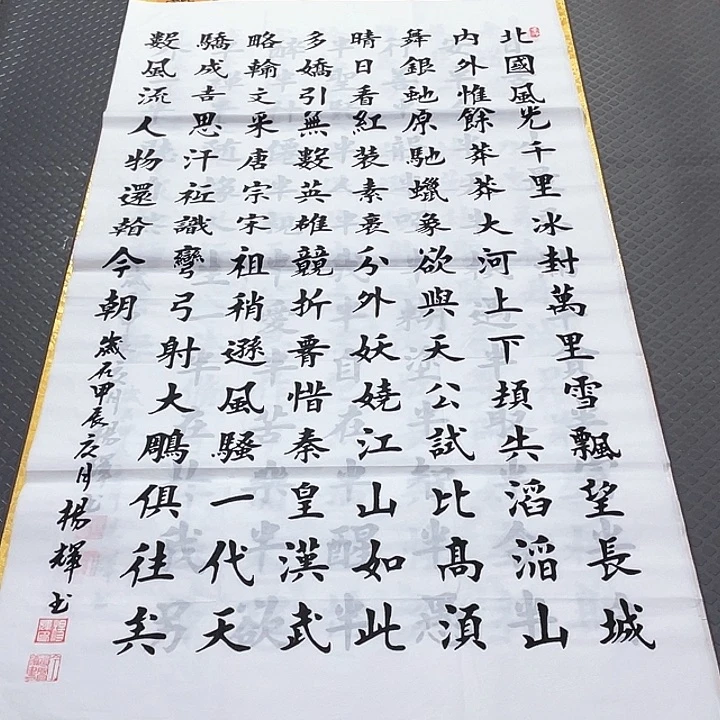 北國風光千里冰封萬里雪飄望長城
内外惟餘莽莽大河上下頓失滔滔山
舞銀虵原馳蠟象欲與天公試比高須
晴日看紅裝素裹分外妖嬈江山如此
多嬌引無數英雄競折腰惜秦皇漢武
略輸文采唐宗宋祖稍遜風騷一代天
驕成吉思汗祗識彎弓射大鵰俱往矣
數風流人物還看今朝
歲在甲辰夏月楊輝书